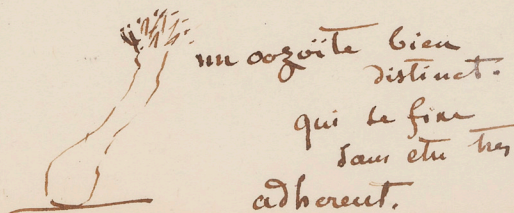 un oozoïte bien
distinct.
qui se fixe
sans etre tres
adherent.